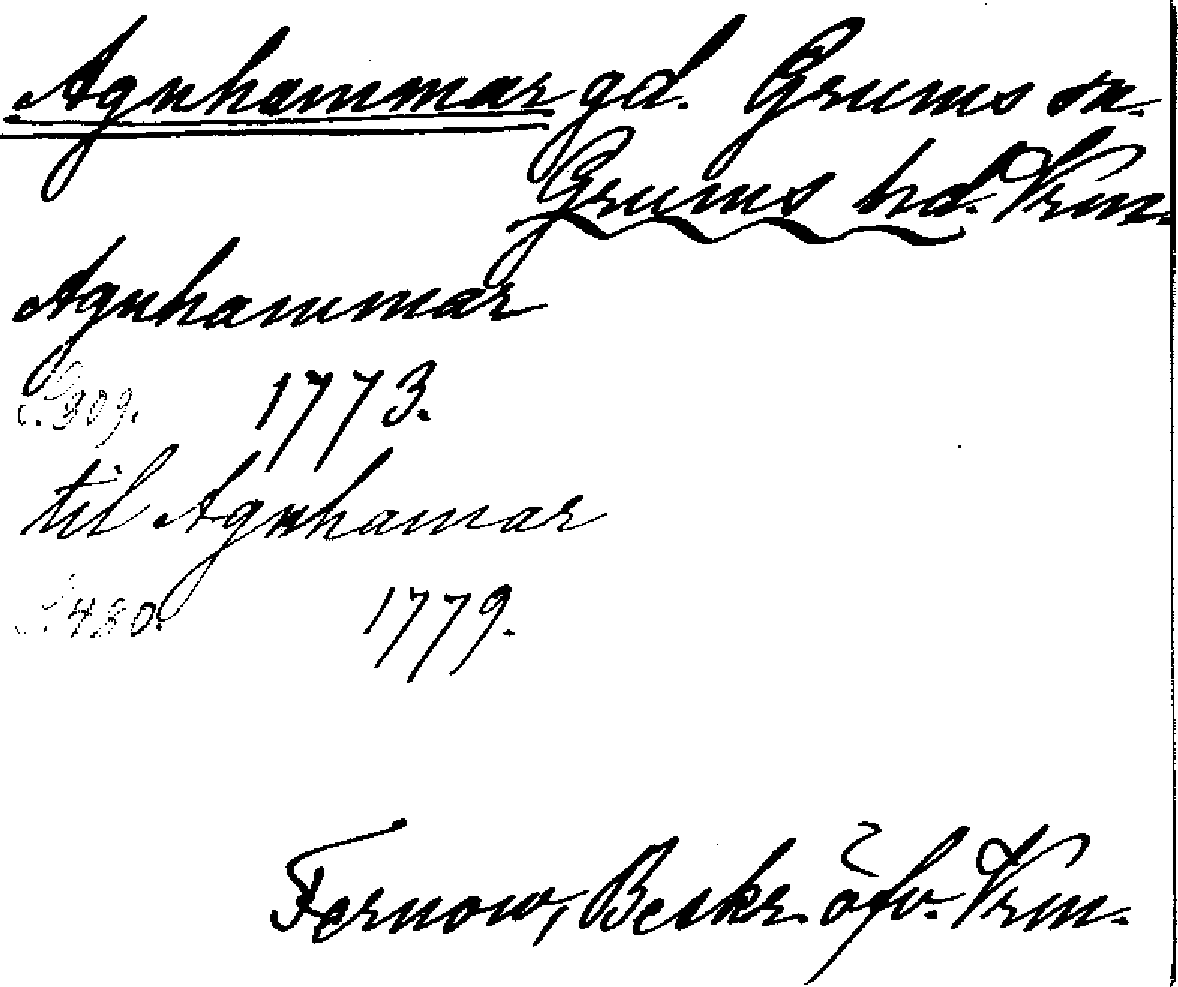 Agnhammar gd. Grums sn.
Grums hd. Vrm.
Agnhammar
S. 309. 1773.
til Agnhamar
S. 480. 1779.
Fernow, Beskr. öfv. Vrm.